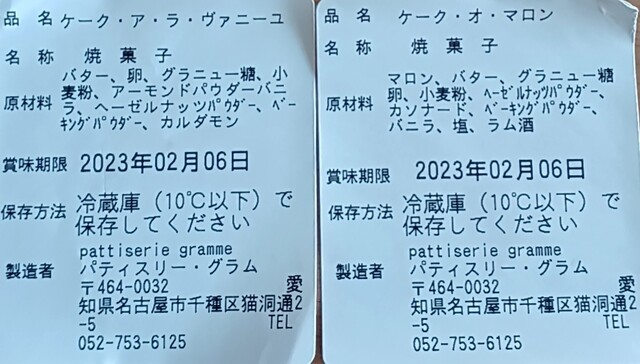 品 名 ケーク・ア・ラ・ヴァニーユ
名 称 焼 菓 子
原材料 バター、卵、グラニュー糖、小
麦粉、アーモンドパウダーバニ
ラ、ヘーゼルナッツパウダー、ベー
キングパウダー、カルダモン
賞味期限 2023年02月06日
保存方法 冷蔵庫（10℃以下）で
保存してください
製造者 pattiserie gramme
パティスリー・グラム
〒464-0032 愛
知県名古屋市千種区猫洞通2
-5 TEL
052-753-6125
品 名 ケーク・オ・マロン
名 称 焼 菓 子
原材料 マロン、バター、グラニュー糖
卵、小麦粉、ヘーゼルナッツパウダー、
カソナード、ベーキングパウダー、
バニラ、塩、ラム酒
賞味期限 2023年02月06日
保存方法 冷蔵庫（10℃以下）で
保存してください
製造者 pattiserie gramme
パティスリー・グラム
〒464-0032 愛
知県名古屋市千種区猫洞通2
-5 TEL
052-753-6125